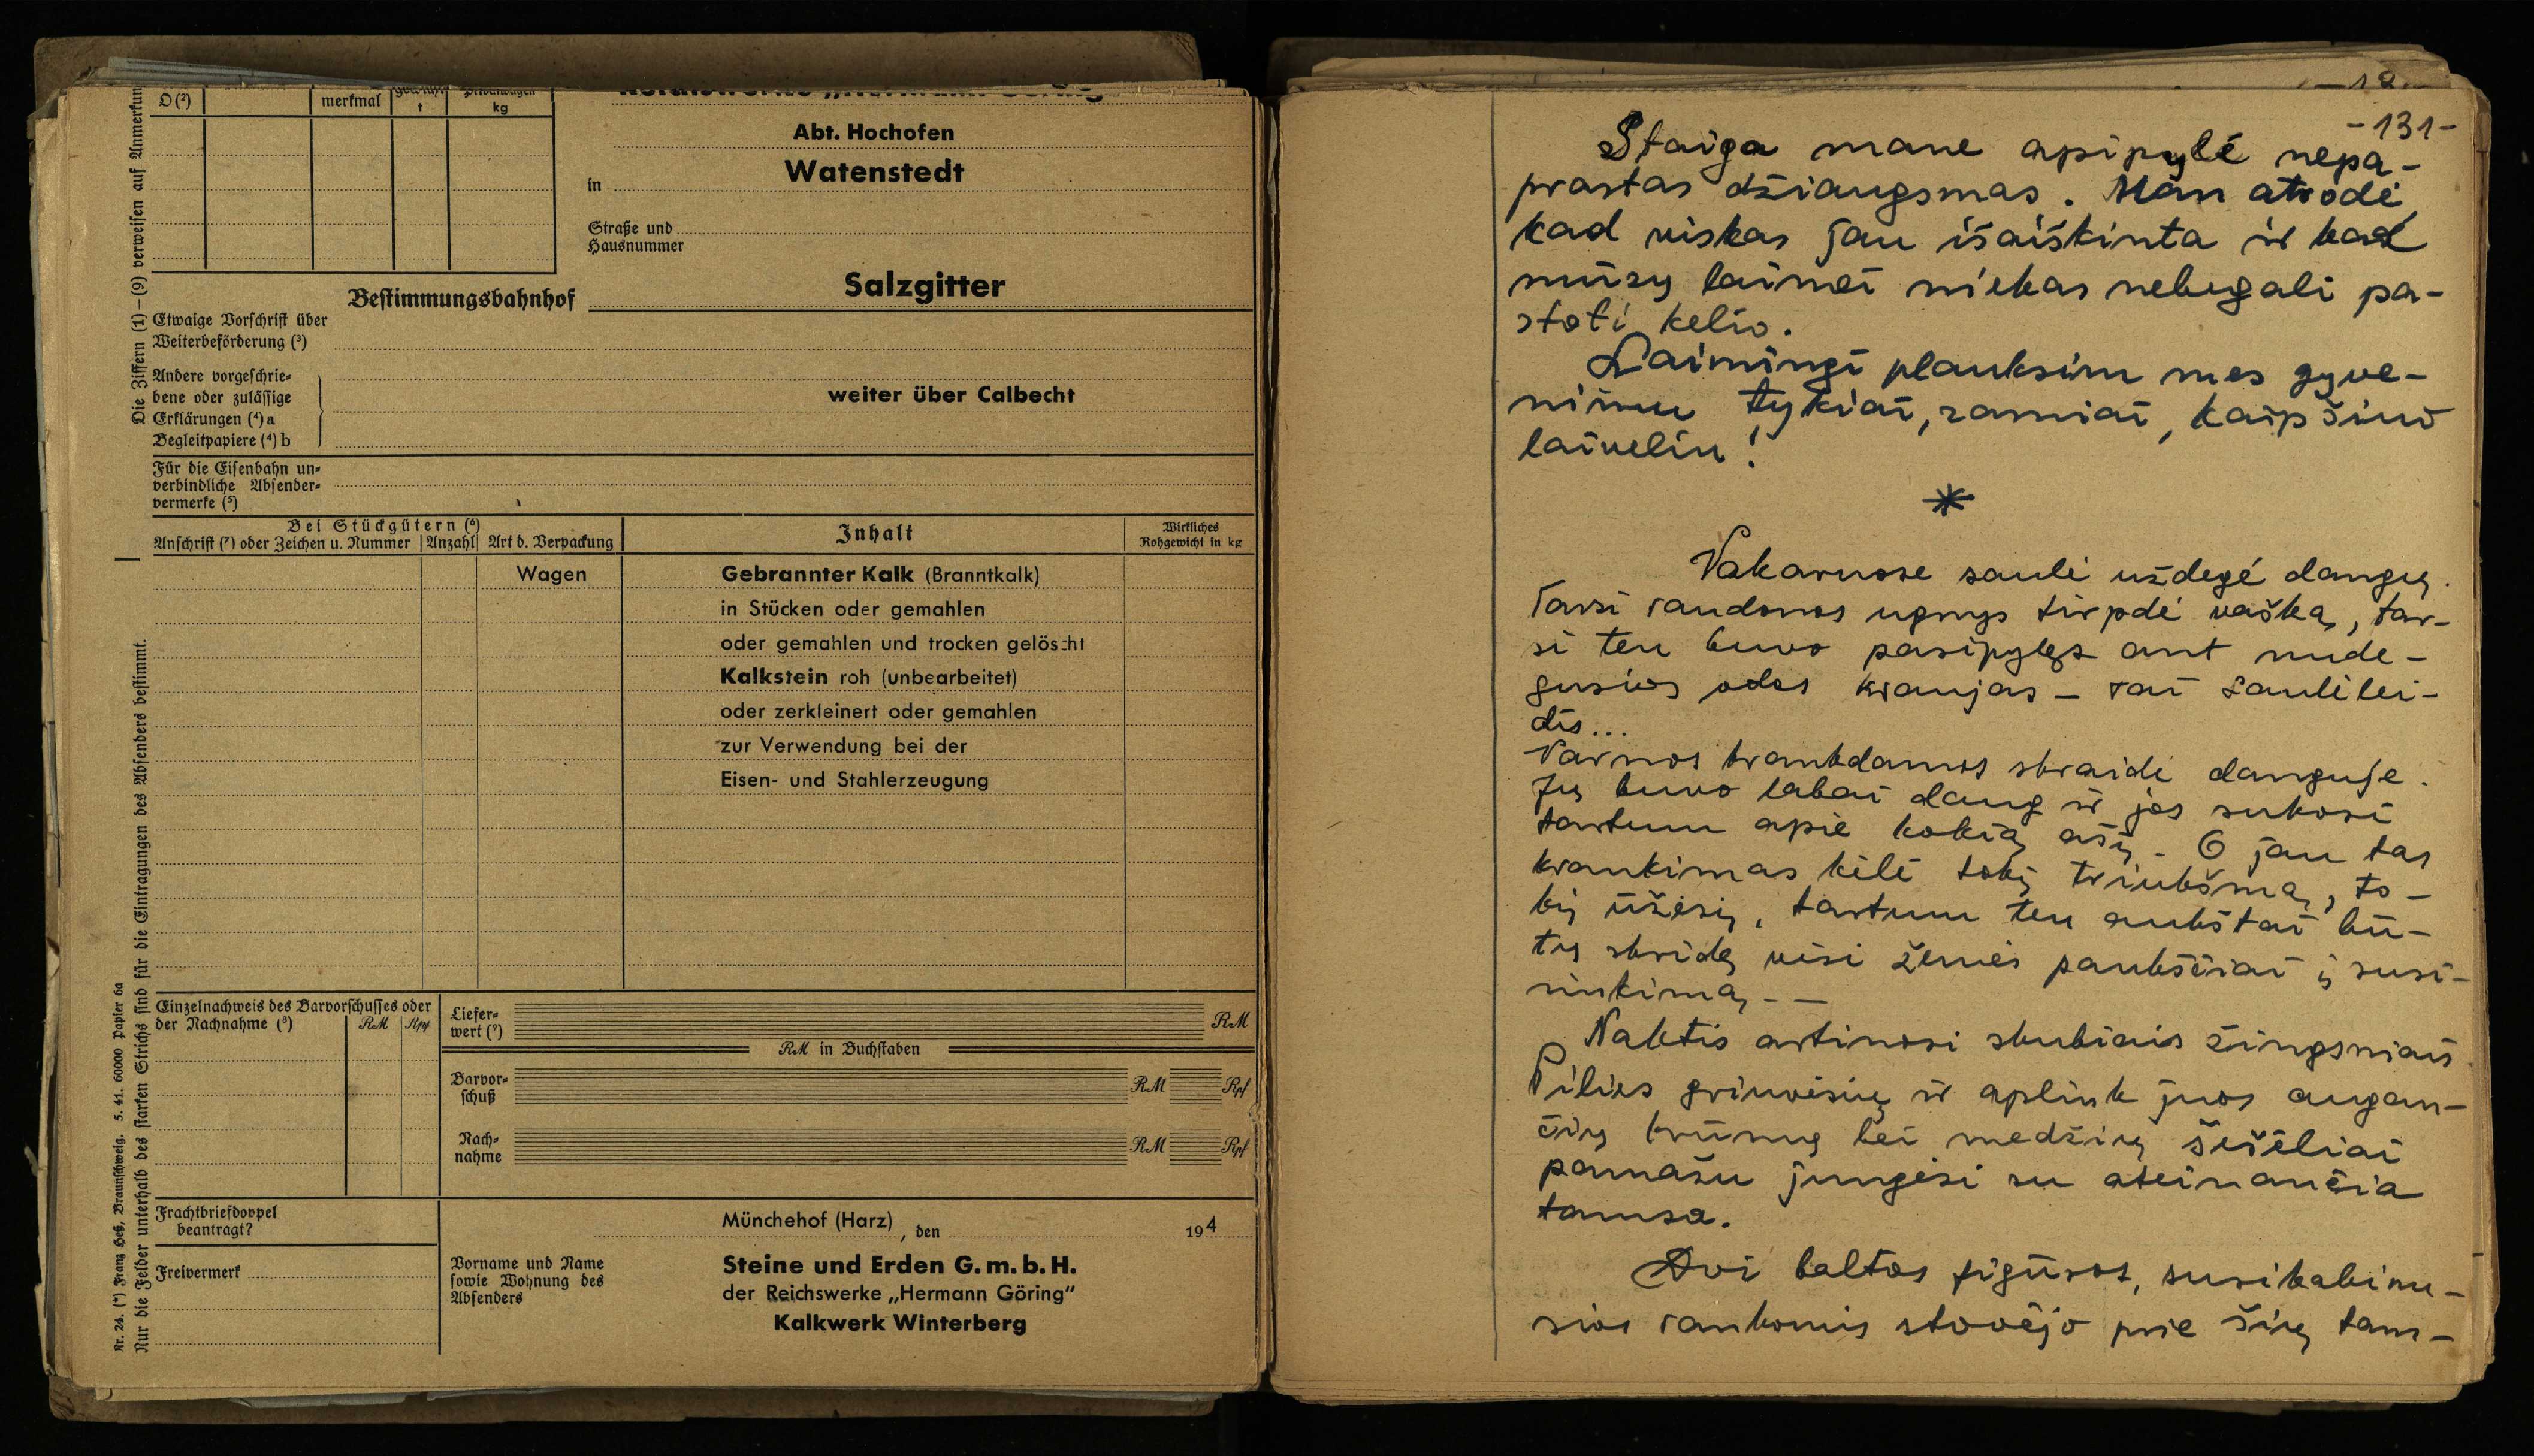 Die Ziffern (1)–(9) verweisen auf Anmerkun
D (²)
merkmal
t
kg
Abt. Hochofen
in Watenstedt
Straße und
Hausnummer
Bestimmungsbahnhof Salzgitter
Etwaige Vorschrift über
Weiterbeförderung (³)
Andere vorgeschrie-
bene oder zulässige
Erklärungen (⁴) a
Begleitpapiere (⁴) b
weiter über Calbecht
Für die Eisenbahn un-
verbindliche Absender-
vermerke (⁵)
Bei Stückgütern (⁶)
Anschrift (⁷) oder Zeichen u. Nummer
Anzahl
Art d. Verpackung
Inhalt
Wirkliches
Rohgewicht in kg
Wagen
Gebrannter Kalk (Branntkalk)
in Stücken oder gemahlen
oder gemahlen und trocken gelöscht
Kalkstein roh (unbearbeitet)
oder zerkleinert oder gemahlen
zur Verwendung bei der
Eisen- und Stahlerzeugung
Einzelnachweis des Barvorschusses oder
der Nachnahme (⁸)
RM
Rpf
Liefer-
wert (⁹)
RM
RM in Buchstaben
Barvor-
schuß
RM
Rpf
Nach-
nahme
RM
Rpf
Frachtbriefdoppel
beantragt?
Freivermerk
Münchehof (Harz), den 194
Vorname und Name
sowie Wohnung des
Absenders
Steine und Erden G. m. b. H.
der Reichswerke „Hermann Göring"
Kalkwerk Winterberg
Nr. 24. (*) Franz Heß, Braunschweig. 5. 41. 60000 Papier 6a
Nur die Felder unterhalb des starken Strichs sind für die Eintragungen des Absenders bestimmt.
-131-
Staiga mane apipylė nepa-
prastas džiaugsmas. Man atrodė,
kad viskas jau išaiškinta ir kad
mūsų laimei niekas nebegali pa-
stoti kelio.
Laimingi plauksim mes gyve-
nimu tykiai, ramiai, kaip šiuo
laiveliu!
*
Vakaruose saulė uždegė dangų.
Tarsi raudonos ugnys tirpdė vašką, tar-
si ten buvo pasipylęs ant nude-
gusios odos kraujas – tai saulėlei-
dis...
Varnos krankdamos skraidė danguje.
Jų buvo labai daug ir jos sukosi
tartum apie kokią ašį. O jau tas
krankimas kėlė tokį triukšmą, to-
kį ūžesį, tartum ten aukštai bū-
tų skridę visi žemės paukščiai į susi-
rinkimą. –
Naktis artinosi skubiais žingsniais.
Pilies griuvėsių ir aplink juos augan-
čių krūmų bei medžių šešėliai
pamažu jungėsi su ateinančia
tamsa.
Dvi baltos figūros, susikabinu-
sios rankomis stovėjo prie šių tam-